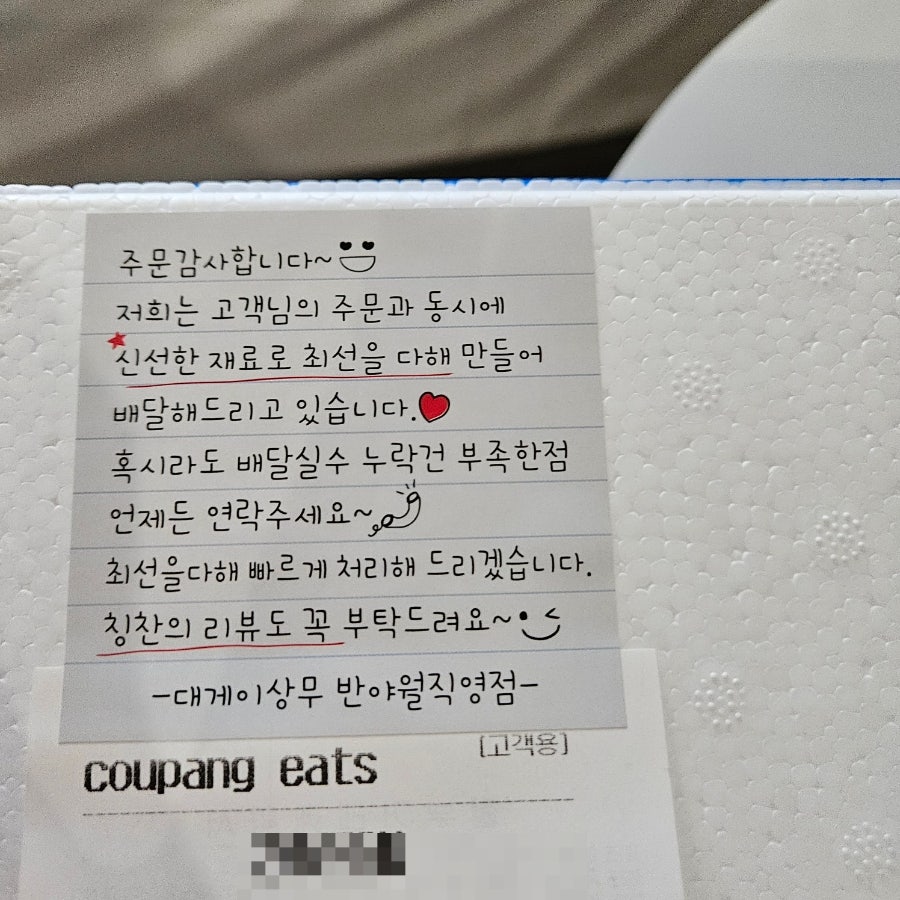 주문감사합니다~
저희는 고객님의 주문과 동시에
신선한 재료로 최선을 다해 만들어
배달해드리고 있습니다.
혹시라도 배달실수 누락건 부족한점
언제든 연락주세요~
최선을다해 빠르게 처리해 드리겠습니다.
칭찬의 리뷰도 꼭 부탁드려요~
-대게이상무 반야월직영점-
[고객용]
coupang eats